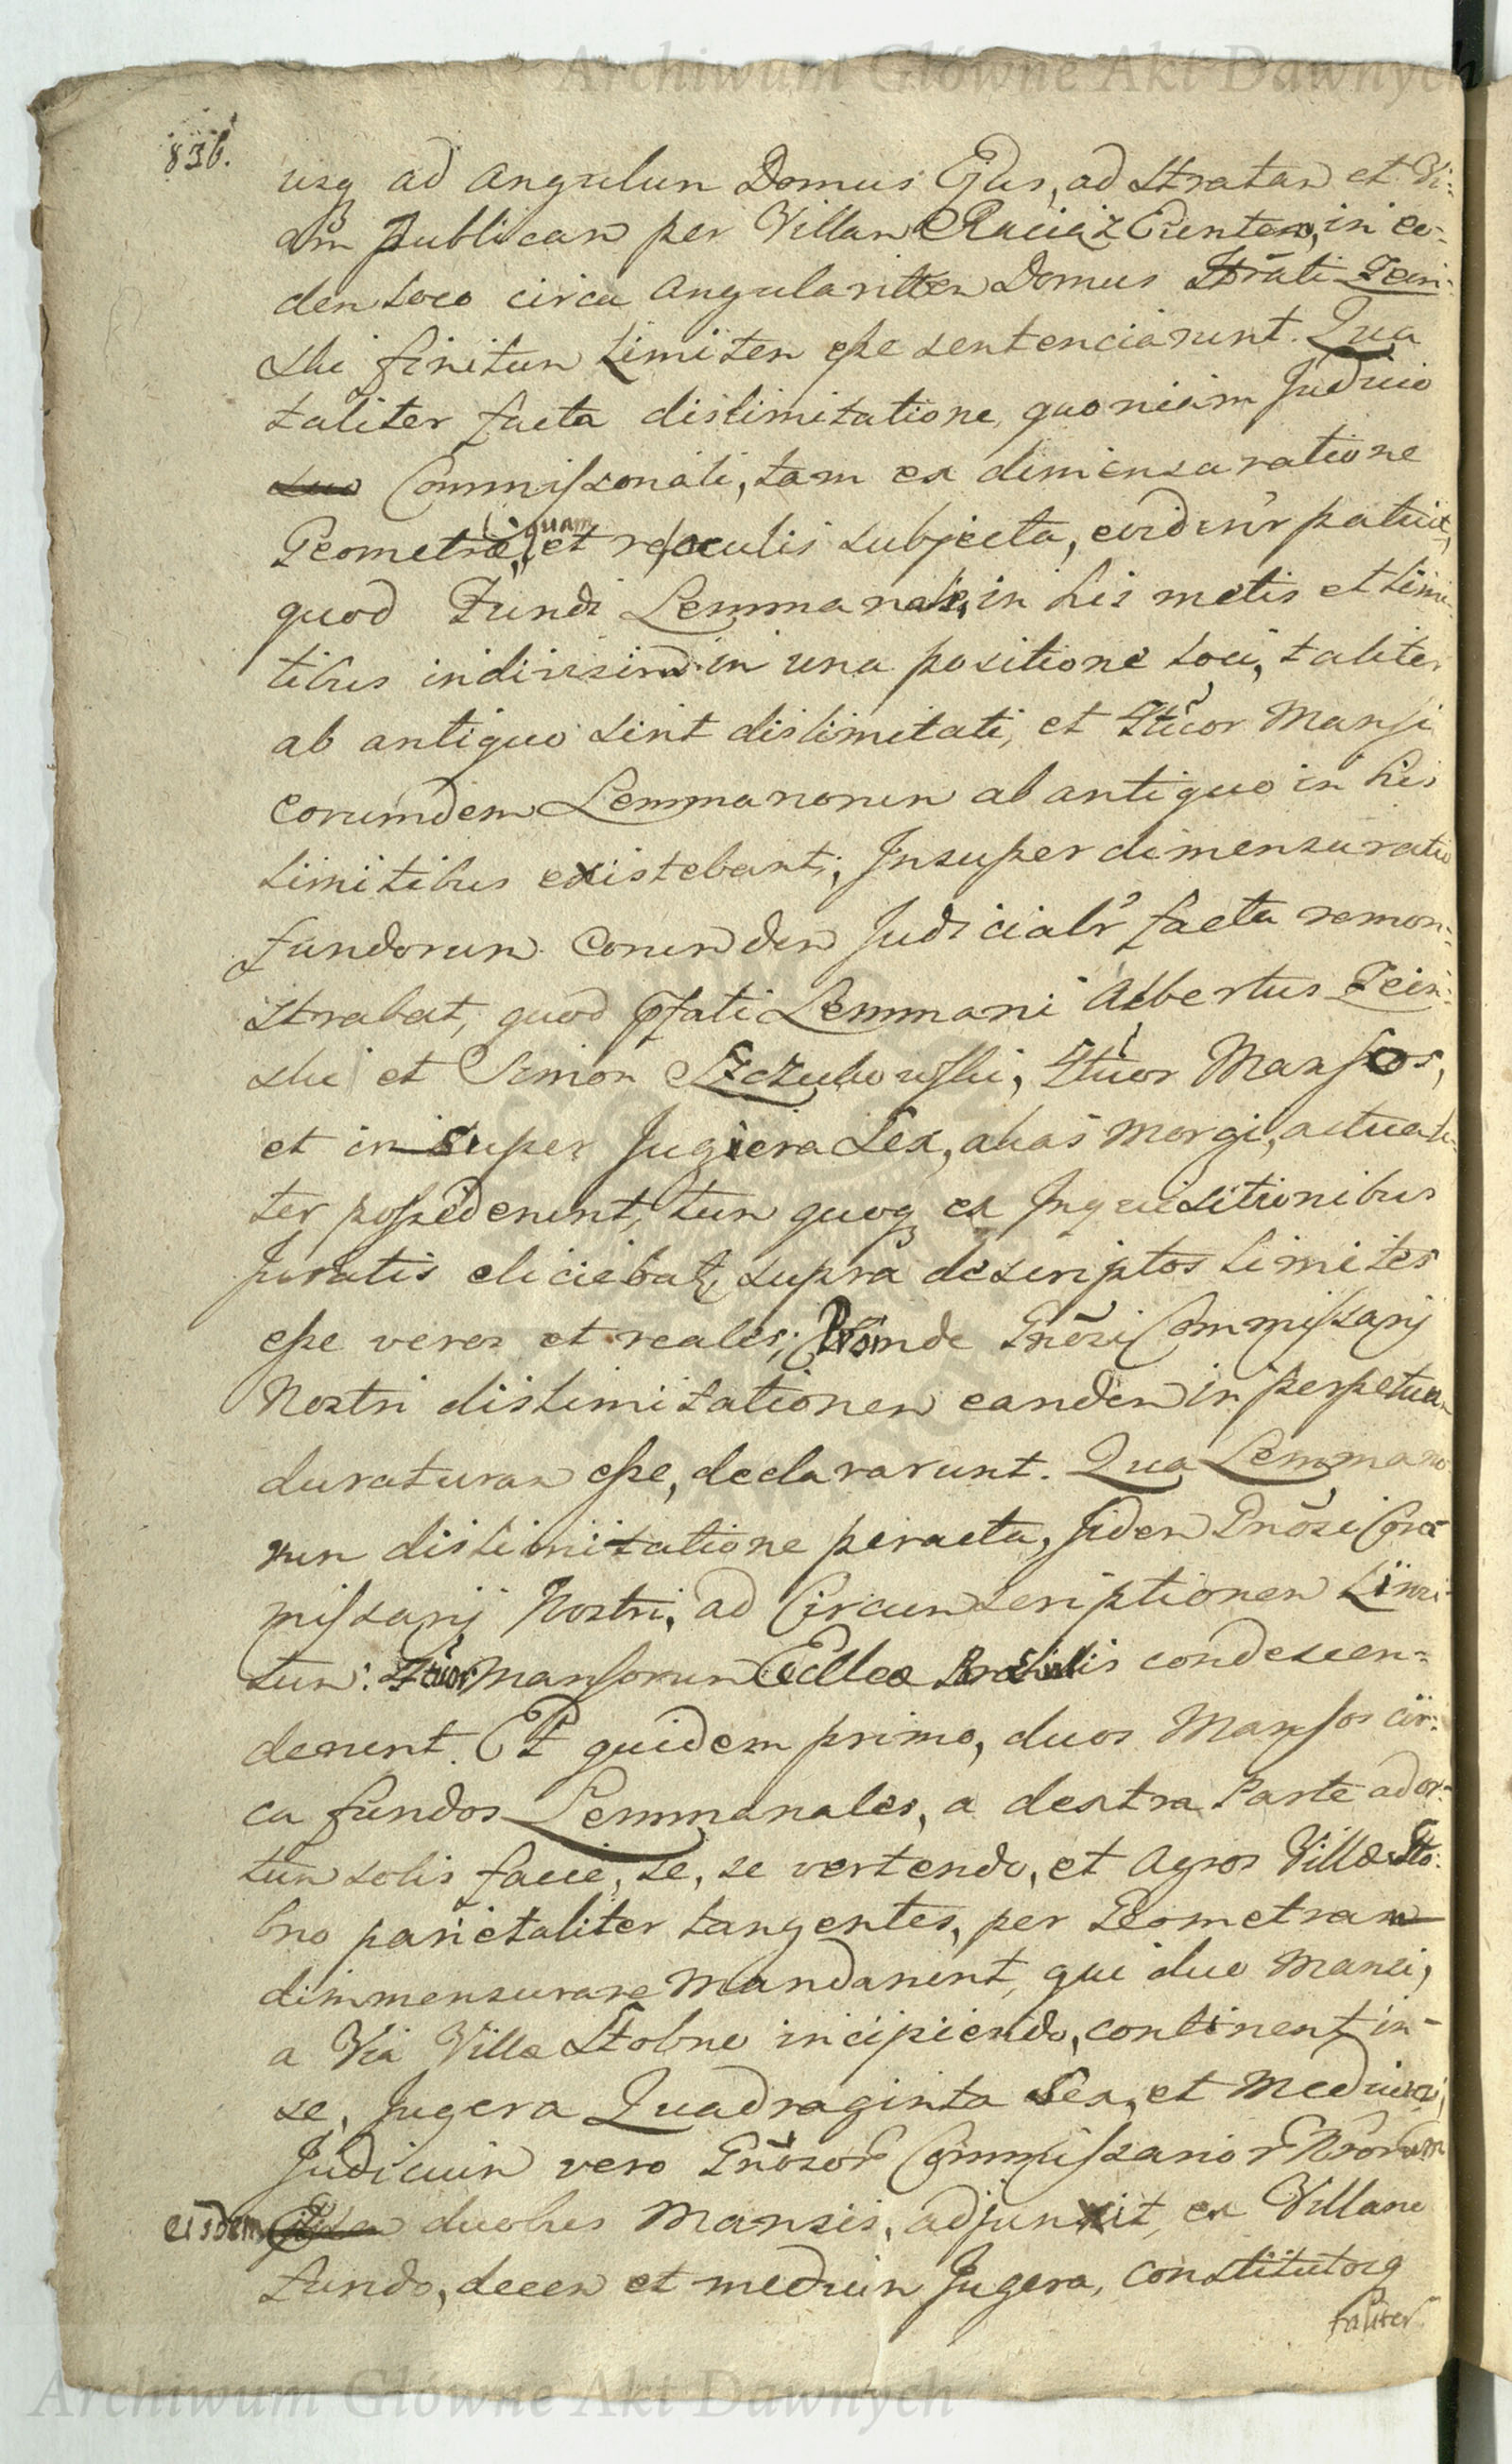 Archiwum Główne Akt Dawnych
836.
usq ad angulum Domus Ejus, ad stratam et Vi-
am publicam per Villam Raciąz Euntem, in eo-
dem loco circa angularitem Domus Strati Zein-
ski finitum Limitem esse sentenciarunt. Qua
taliter facta dislimitatione, quoniam Judicio
suo Commissoriali, tam ex dimensuratione
Geometræ, quam et reoculis subjecta, evidenr patuit,
quod Fundi Lemmanales, in his metis et limi-
tibus indivisim in una positione loci, taliter
ab antiquo sint dislimitati, et Qtuor Mansi
eorumdem Lemmanorum ab antiquo in his
Limitibus existebant; Insuper dimensuratio
Fundorum eorundem Judicialr facta remon-
strabat, quod pfati Lemmani Albertus Zein-
ski et Simon Szczubowski, Qtuor Mansos,
et in super Jugera Sex, alias Morgi, actuali-
ter possederunt, tum quoq ex Inquisitionibus
Juratis eliciebat, supra descriptos Limites
esse veros et reales; Proinde Gnosi Commissarij
Nostri dislimitationem eandem in perpetuum
duraturam esse, declararunt. Qua Lemmano-
rum dislimitatione peracta, Iidem Gnosi Com-
missarij Nostri, ad Circumscriptionem Limi-
tum: Qtuor Mansorum Ecclæ condescen-
derunt. Et quidem primo, duos Mansos cir-
ca fundos Lemmanales, a dextra Parte ad or-
tum solis facie, se, se vertendo, et Agros Villæ Sto-
bno parietaliter tangentes, per Geometram
dimmensurare Mandarunt, qui duo Mansi,
a Via Villæ Stobno incipiendo, continent in
se, Jugera Quadraginta Sex, et Medium,
Judicium vero Gnosor Commissarior Nrorum
eisdem duobus Mansis, adjunxit, ex Villano
Fundo, decem et medium Jugera, constitutoq
taliter
Archiwum Główne Akt Dawnych